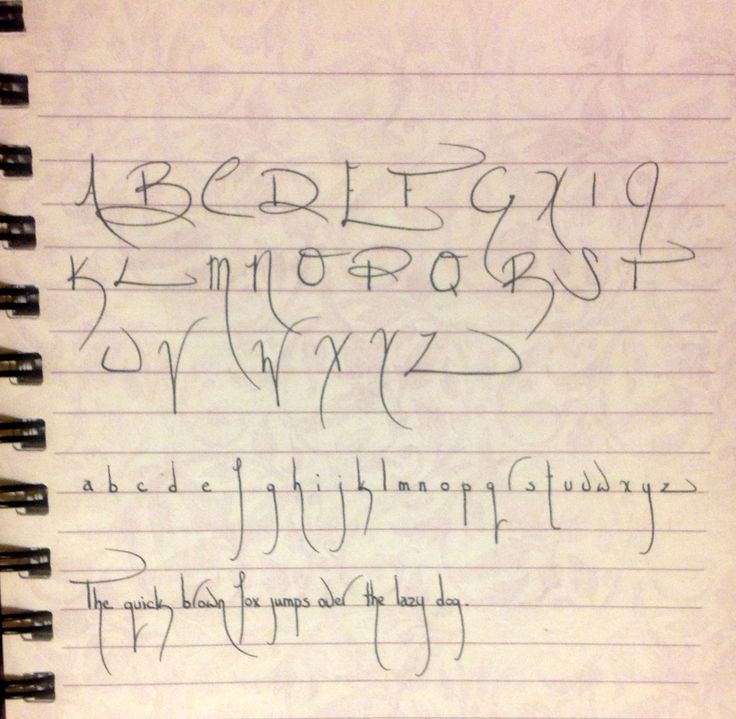 A B C D E F G X I Q
K L M N O P Q R S T
U V W X Y Z
a b c d e f g h i j k l m n o p q r s t u v w x y z
The quick brown fox jumps over the lazy dog.